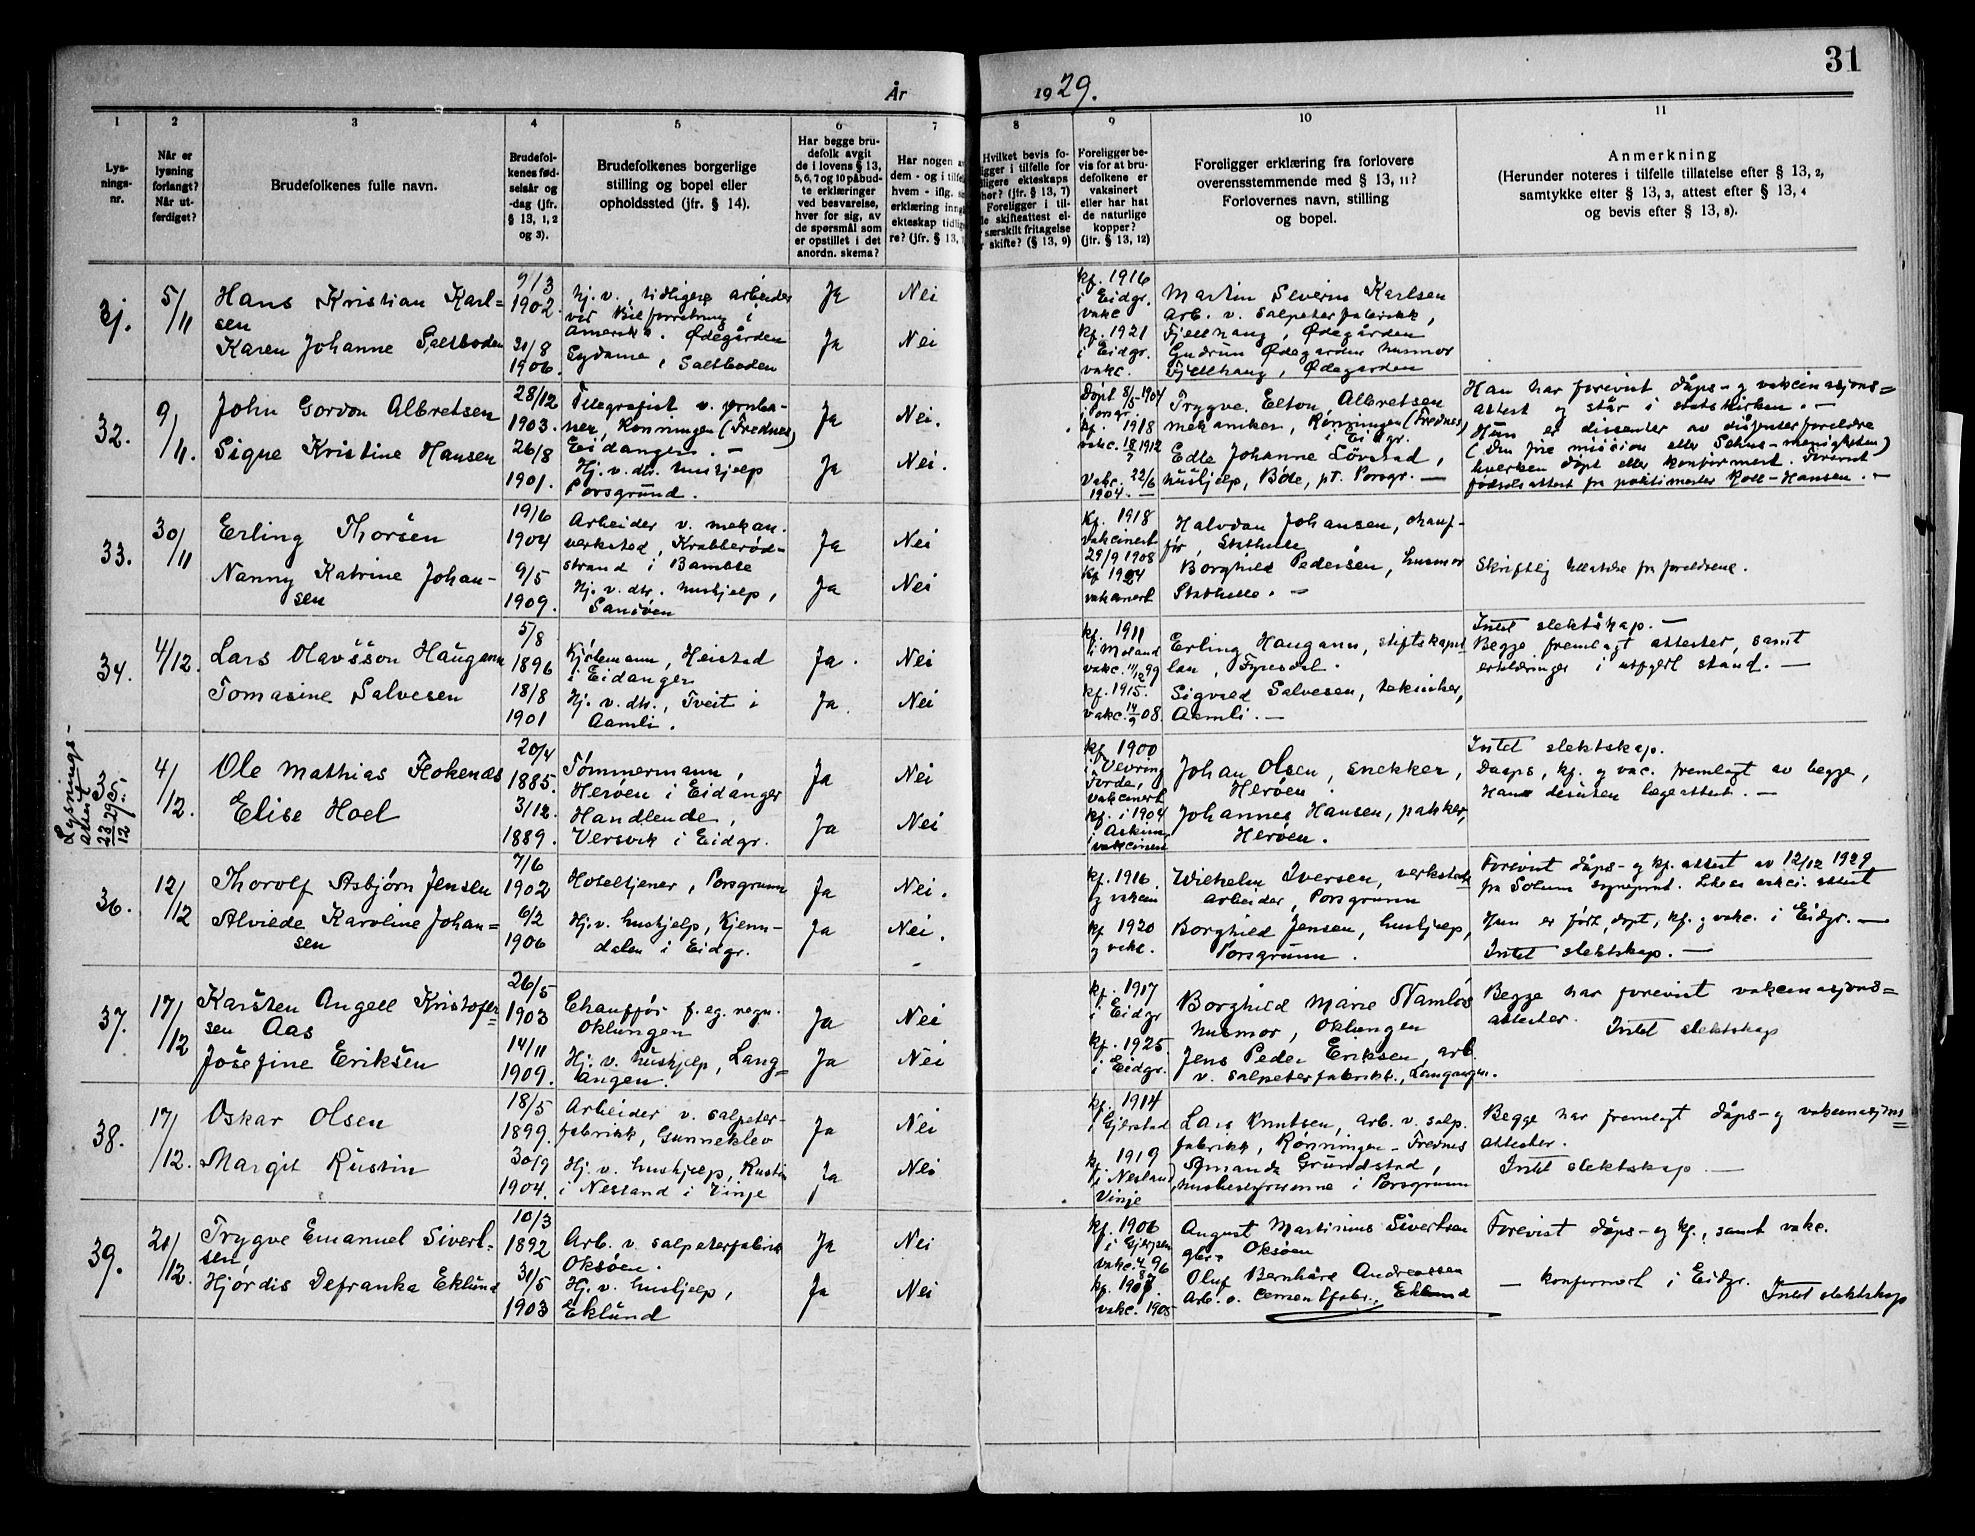 31
År 1929.
1 2 3 4 5 6 7 8 9 10 11
Lys-
nings-
nr.
Når er
lysning
forlangt?
Når ut-
ferdiget?
Brudefolkenes fulle navn.
Brudefol-
kenes fød-
selsår og
-dag (jfr.
§ 13, 1, 2
og 3).
Brudefolkenes borgerlige
stilling og bopel eller
opholdssted (jfr. § 14).
Har begge bru-
defolk avgit
de i lovens § 13,
5, 6, 7 og 10 påbud-
te erklæringer
ved besvarelse,
hver for sig, av
de spørsmål som
er opstillet i det
anordn. skema?
Har nogen av
dem - og i tilfe
hvem - iflg. sin
erklæring inng
ekteskap tidlig
re? (jfr. § 13,
Hvilket bevis fo-
ligger i tilfelle for
dligere ekteskaps
hør? (jfr. § 13, 7)
Foreligger i til-
le skifteattest el-
r særskilt fritagelse
r skifte? (§ 13, 9)
Foreligger be-
vis for at bru-
defolkene er
vaksinert
eller har hat
de naturlige
kopper?
(jfr. § 13, 12)
Foreligger erklæring fra forlovere
overensstemmende med § 13, 11?
Forlovernes navn, stilling
og bopel.
Anmerkning
(Herunder noteres i tilfelle tillatelse efter § 13, 2,
samtykke efter § 13, 3, attest efter § 13, 4
og bevis efter § 13, 8).
31.
5/11
Hans Kristian Karl-
sen
Karen Johanne Saltboden
9/3
1902.
31/8
1906.
Hj. v., tidligere arbeider
ved bilforretning i
Amerika. Ødegården
Sydame, Saltboden
Ja
Ja
Nei
Nei
kf. 1916
i Eidgr.
vakc.
kf. 1921
i Eidgr.
vakc.
Martin Severin Karlsen
Arb. v. salpeterfabrikk,
Fjellhaug, Ødegården
Gudrun Ødegården husmor
Fjellhaug, Ødegården
32.
9/11.
John Gordon Albretsen
Signe Kristine Hansen
28/12
1903.
26/8
1901.
Telegrafist v. jernba-
nen, Rønningen (Frednes)
Eidanger. —
Hj. v. dtr. hushjelp
Porsgrund.
Ja
Ja
Nei.
Nei.
Døpt 8/5-1904
i Porsgr.
kf. 1918
vakc. 18/7 1912
Vakc. 22/6
1904. —
Trygve Elton Albretsen
mekaniker, Rønningen (Frednes)
i Eidgr.
Edle Johanne Løvstad,
hushjelp, Bøle, pt. Porsgr. —
Han har forevist dåps- og vakcinasjons=
attest og står i statskirken. —
Hun er dissenter av dissenterforeldre
(Den frie mission eller menigheten)
hverken døpt eller konfirmert. Forevist
fødselsattest fra politimester Roll-Hansen. —
33.
30/11
Erling Thorsen
Nanny Katrine Johan-
sen
19/6
1904
9/5
1909.
Arbeider v. mekan.
verksted, Krabberød-
strand i Bamble
Hj. v. dtr. hushjelp,
Sandøen
Ja
Ja
Nei
Nei
Kf. 1918
vakcinert
29/9 1908
Kf 1924
vakcinert
Halvdan Johansen, chauf-
før, Stathelle
Borghild Pedersen, husmor
Stathelle. —
Skriftlig tillatelse fra foreldrene.
34.
4/12.
Lars Olavsson Haugann
Tomasine Salvesen
5/8
1896
18/8
1901
Kjølemann, Heistad
i Eidanger
Hj. v. dtr., Tveit i
Aamli.
Ja.
Ja.
Nei
Nei
kf. 1911
i Moland
vakc. 11/12 99
kf. 1915.
vakc. 14/9 08.
Erling Haugann, stiftskapel-
lan, Fyresdal.
Sigvald Salvesen, tekniker,
Aamli. —
Intet slektskap. —
Begge fremlagt attester, samt
erklæringer i utfyllt stand. —
Lysnings-
attest
23/12 29
35.
4/12.
Ole Mathias Hokenæs
Elise Hoel
20/4
1885.
3/12.
1889.
Tømmermann,
Herøen i Eidanger
Handlende,
Versvik i Eidgr.
Ja
Ja
Nei
Nei
kf. 1900
i Vevring
Førde,
vakcinert
kf. i 1904
i Askim
vakcinert
Johan Olsen, snekker,
Herøen.
Johannes Hansen, pakker,
Herøen.
Intet slektskap.
Daaps, kf. og vac. fremlagt av begge,
Han desuten legeattest. —
36.
12/12
Thorolf Asbjørn Jensen
Alviede Karoline Johan=
sen
7/6
1902
6/2
1906
Hoteltjener, Porsgrunn
Hj. v. hushjelp, Kjenn-
dalen i Eidgr.
Ja
Ja
Nei.
Nei.
kf. 1916.
og vakcin
kf. 1920
og vakc.
Wilhelm Iversen, verksteds-
arbeider, Porsgrunn
Borghild Jensen, hushjelp,
Porsgrunn.
Forevist dåps- og kf. attest av 12/12 1929
fra Solum sogneprest. Likeså vakci. attest
Hun er født, døpt, kf. og vakc. i Eidgr. —
Intet slektskap. —
37.
17/12
Karsten Angell Kristofer-
sen Aas
Josefine Eriksen
26/5
1903
14/11
1909.
Chauffør f. eg. regn.
Oklungen
Hj. v. hushjelp, Lang=
angen.
Ja
Ja
Nei
Nei
kf. 1917
i Eidgr
kf. 1925.
i Eidgr.
Borghild Marie Namløs
husmor, Oklungen
Jens Peder Eriksen, arb.
v. salpeterfabrikk., Langangen.
Begge har forevist vakcinasjons=
attester.
Intet slektskap
38.
17/12.
Oskar Olsen
Margit Rustin
18/5
1899.
30/9
1904.
Arbeider v. salpeter-
fabrikk, Gunneklev
Hj. v. hushjelp, Rustin
i Nesland i Vinje
Ja
Ja
Nei
Nei
kf. 1914
i Gjerstad
kf. 1919
i Nesland,
Vinje
Lars Knutsen, arb. v. salp.
fabrikk, Rønningen - Frednes
Amanda Grundstad,
husbestyrerinne i Porsgrunn
Begge har fremlagt dåps- og vakcinasjons=
attester.
Intet slektskap —
39.
20/12.
Trygve Emanuel Sivert-
sen
Hjørdis Defranka Eklund
10/3
1892
31/5
1903
Arb. v. salpeterfabrik
Oksøen.
Hj. v. hushjelp,
Eklund
Ja
Ja
Nei
Nei
kf. 1906
i Gjerpen
vakc. 4/8 96
kf. 190
vakc. 1905
August Martinius Sivertsen
gbr. Oksøen
Oluf Bernhard Andreassen
Arb. v. Cementfabr., Eklund
Forevist dåps- og kf., samt vakc.
— konfirmert i Eidgr.
Intet slektskap